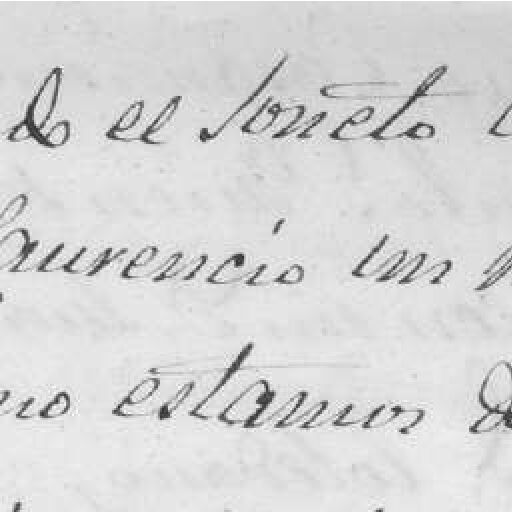 do el soneto
Laurencio un
mo estamos de